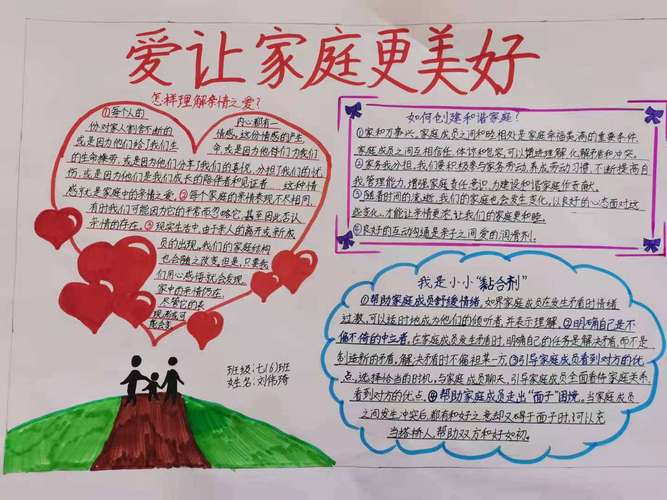 爱让家庭更美好
怎样理解亲情之爱?
①每个人的
内心都有一
份对家人割舍不断的
情感,这份情感的产生,
或是因为他们给了我们生
命,或是因为他们为我们
的生命操劳,或是因为他们分享了我们的喜悦,分担了我们的忧
伤,或是因为他们是我们成长的陪伴者和见证者。这种情
感就是家庭中的亲情之爱。②每个家庭的亲情表现不尽相同,
有时我们可能因为它的平常而忽略它,甚至因此否认
亲情的存在。③现实生活中,由于亲人的离开或新成
员的出现,我们的家庭结构
也会随之改变,但是,只要我
们用心感悟,就会发现,
家中的亲情仍在,
尽管它的表
现形式可
能会变
班级:七(6)班
姓名:刘伟琦
如何创建和谐家庭?
①家和万事兴,家庭成员之间和睦相处是家庭幸福美满的重要条件,
家庭成员之间互相信任、体谅和包容,可以增进理解,化解矛盾和冲突。
②家务我分担,我们要积极参与家务劳动,养成劳动习惯,不断提高自
我管理能力,增强家庭责任意识,为建设和谐家庭作贡献。
③随着时间的流逝,我们的家庭也会发生变化,以良好的心态面对这
些变化,才能让亲情更浓,让我们的家庭更和睦。
④良好的互动沟通是亲子之间爱的润滑剂。
我是小小“黏合剂”
①帮助家庭成员舒缓情绪,如果家庭成员在发生矛盾时情绪
过激,可以适时地成为他们的倾听者,并表示理解。②明确自己是不
偏不倚的中立者,在家庭成员发生矛盾时,明确自己的任务是解决矛盾,而不是
制造新的矛盾,解决矛盾时不偏袒某一方。③引导家庭成员看到对方的优
点,选择恰当的时机,与家庭成员聊天,引导家庭成员全面看待家庭关系,
看到对方的优点。④帮助家庭成员走出“面子”困境。当家庭成员
之间发生冲突后,都有和好之意却又碍于面子时,可以充
当搭桥人,帮助双方和好如初。